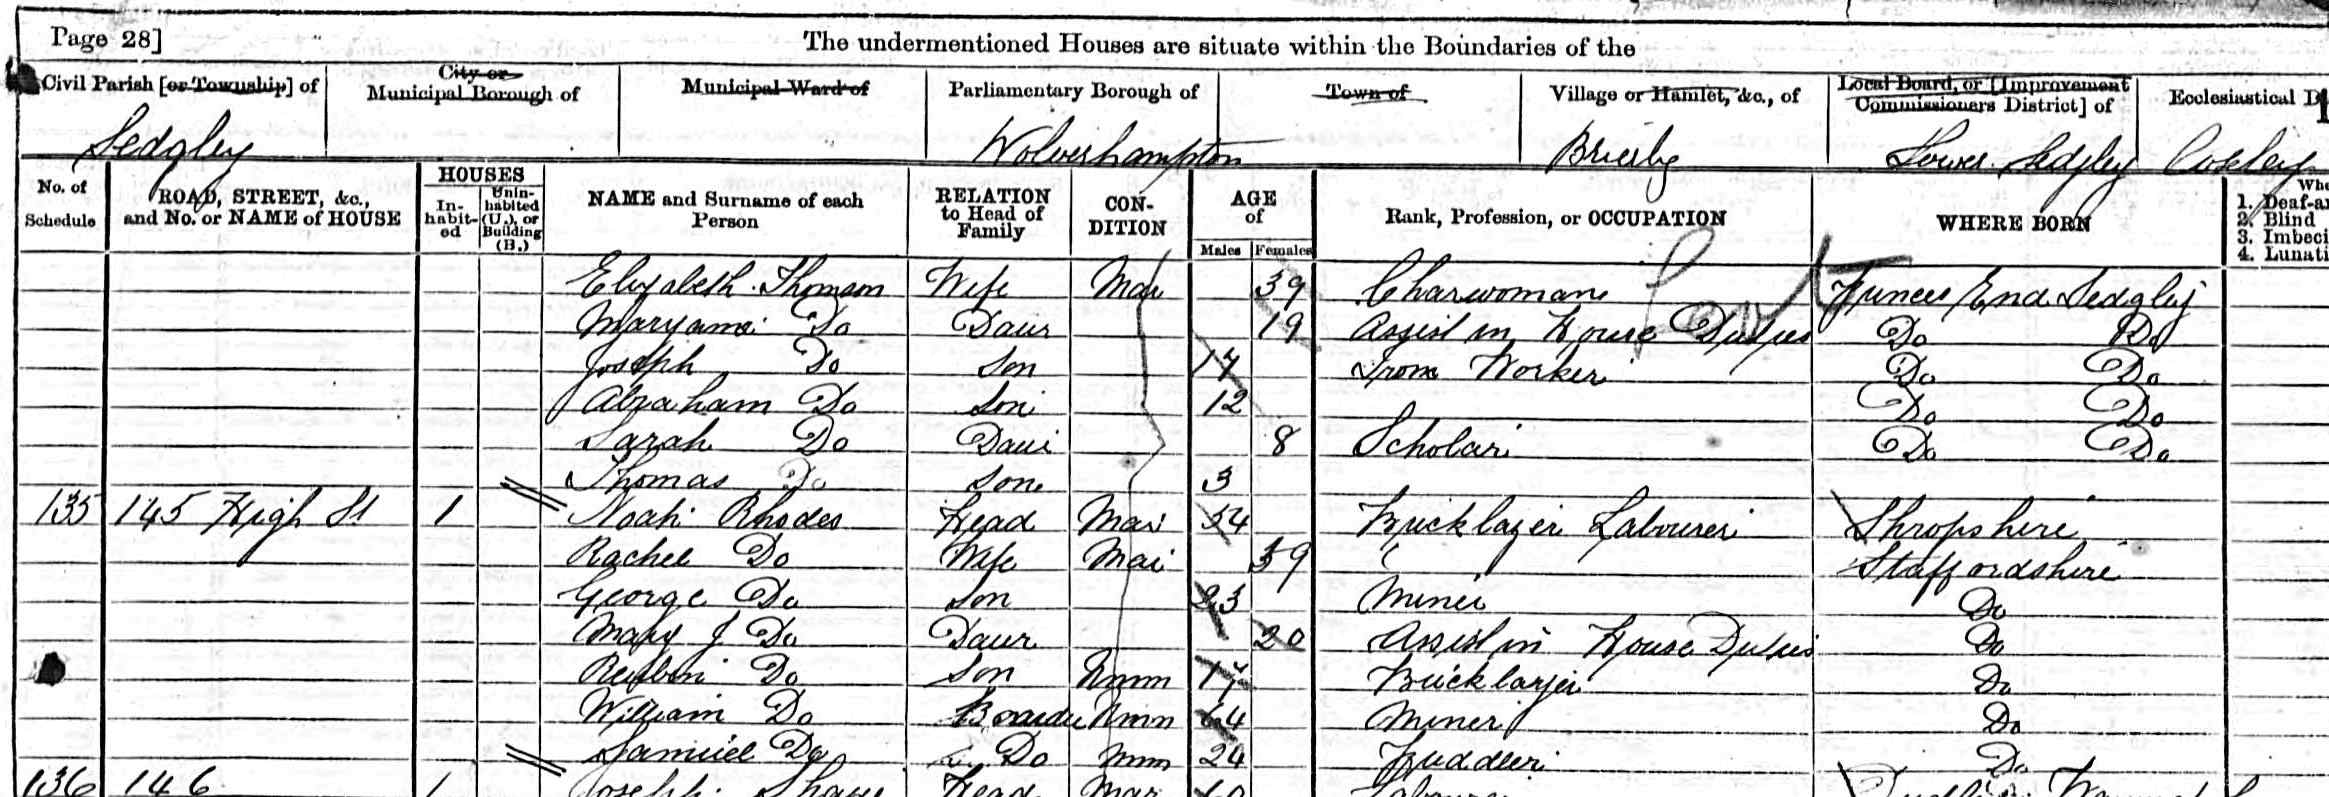 Page 28]
The undermentioned Houses are situate within the Boundaries of the
Civil Parish [or Township] of City or Municipal Borough of Municipal Ward of Parliamentary Borough of Town of Village or Hamlet, &c., of Local Board, or [Improvement Commissioners District] of Ecclesiastical D
Sedgley Wolverhampton Brierley Lower Sedgley Coseley
No. of Schedule ROAD, STREET, &c., and No. or NAME of HOUSE HOUSES In-habit-ed Unin-habited (U.), or Building (B.) NAME and Surname of each Person RELATION to Head of Family CON-DITION AGE of Males Females Rank, Profession, or OCCUPATION WHERE BORN Whe
1. Deaf-an
2. Blind
3. Imbeci
4. Lunati
Elizabeth Thomson Wife Mar 39 Charwoman End Sedgley
Maryann Do Daur 19 Assist in House Duties Do Do
Joseph Do Son 17 Iron Worker Do Do
Abraham Do Son 12 Do Do
Sarah Do Daur 8 Scholar Do Do
Thomas Do Son 3
135 145 High St 1 Noah Rhodes Head Mar 54 Bricklayer Labourer Shropshire
Rachel Do Wife Mar 59 Staffordshire
George Do Son 23 Miner Do
Mary J Do Daur 20 Assist in House Duties Do
Reuben Do Son Unm 17 Bricklayer Do
William Do Boarder Unm 64 Miner Do
Samuel Do Do Unm 24 Puddler Do
136 146 1 Joseph Head Mar